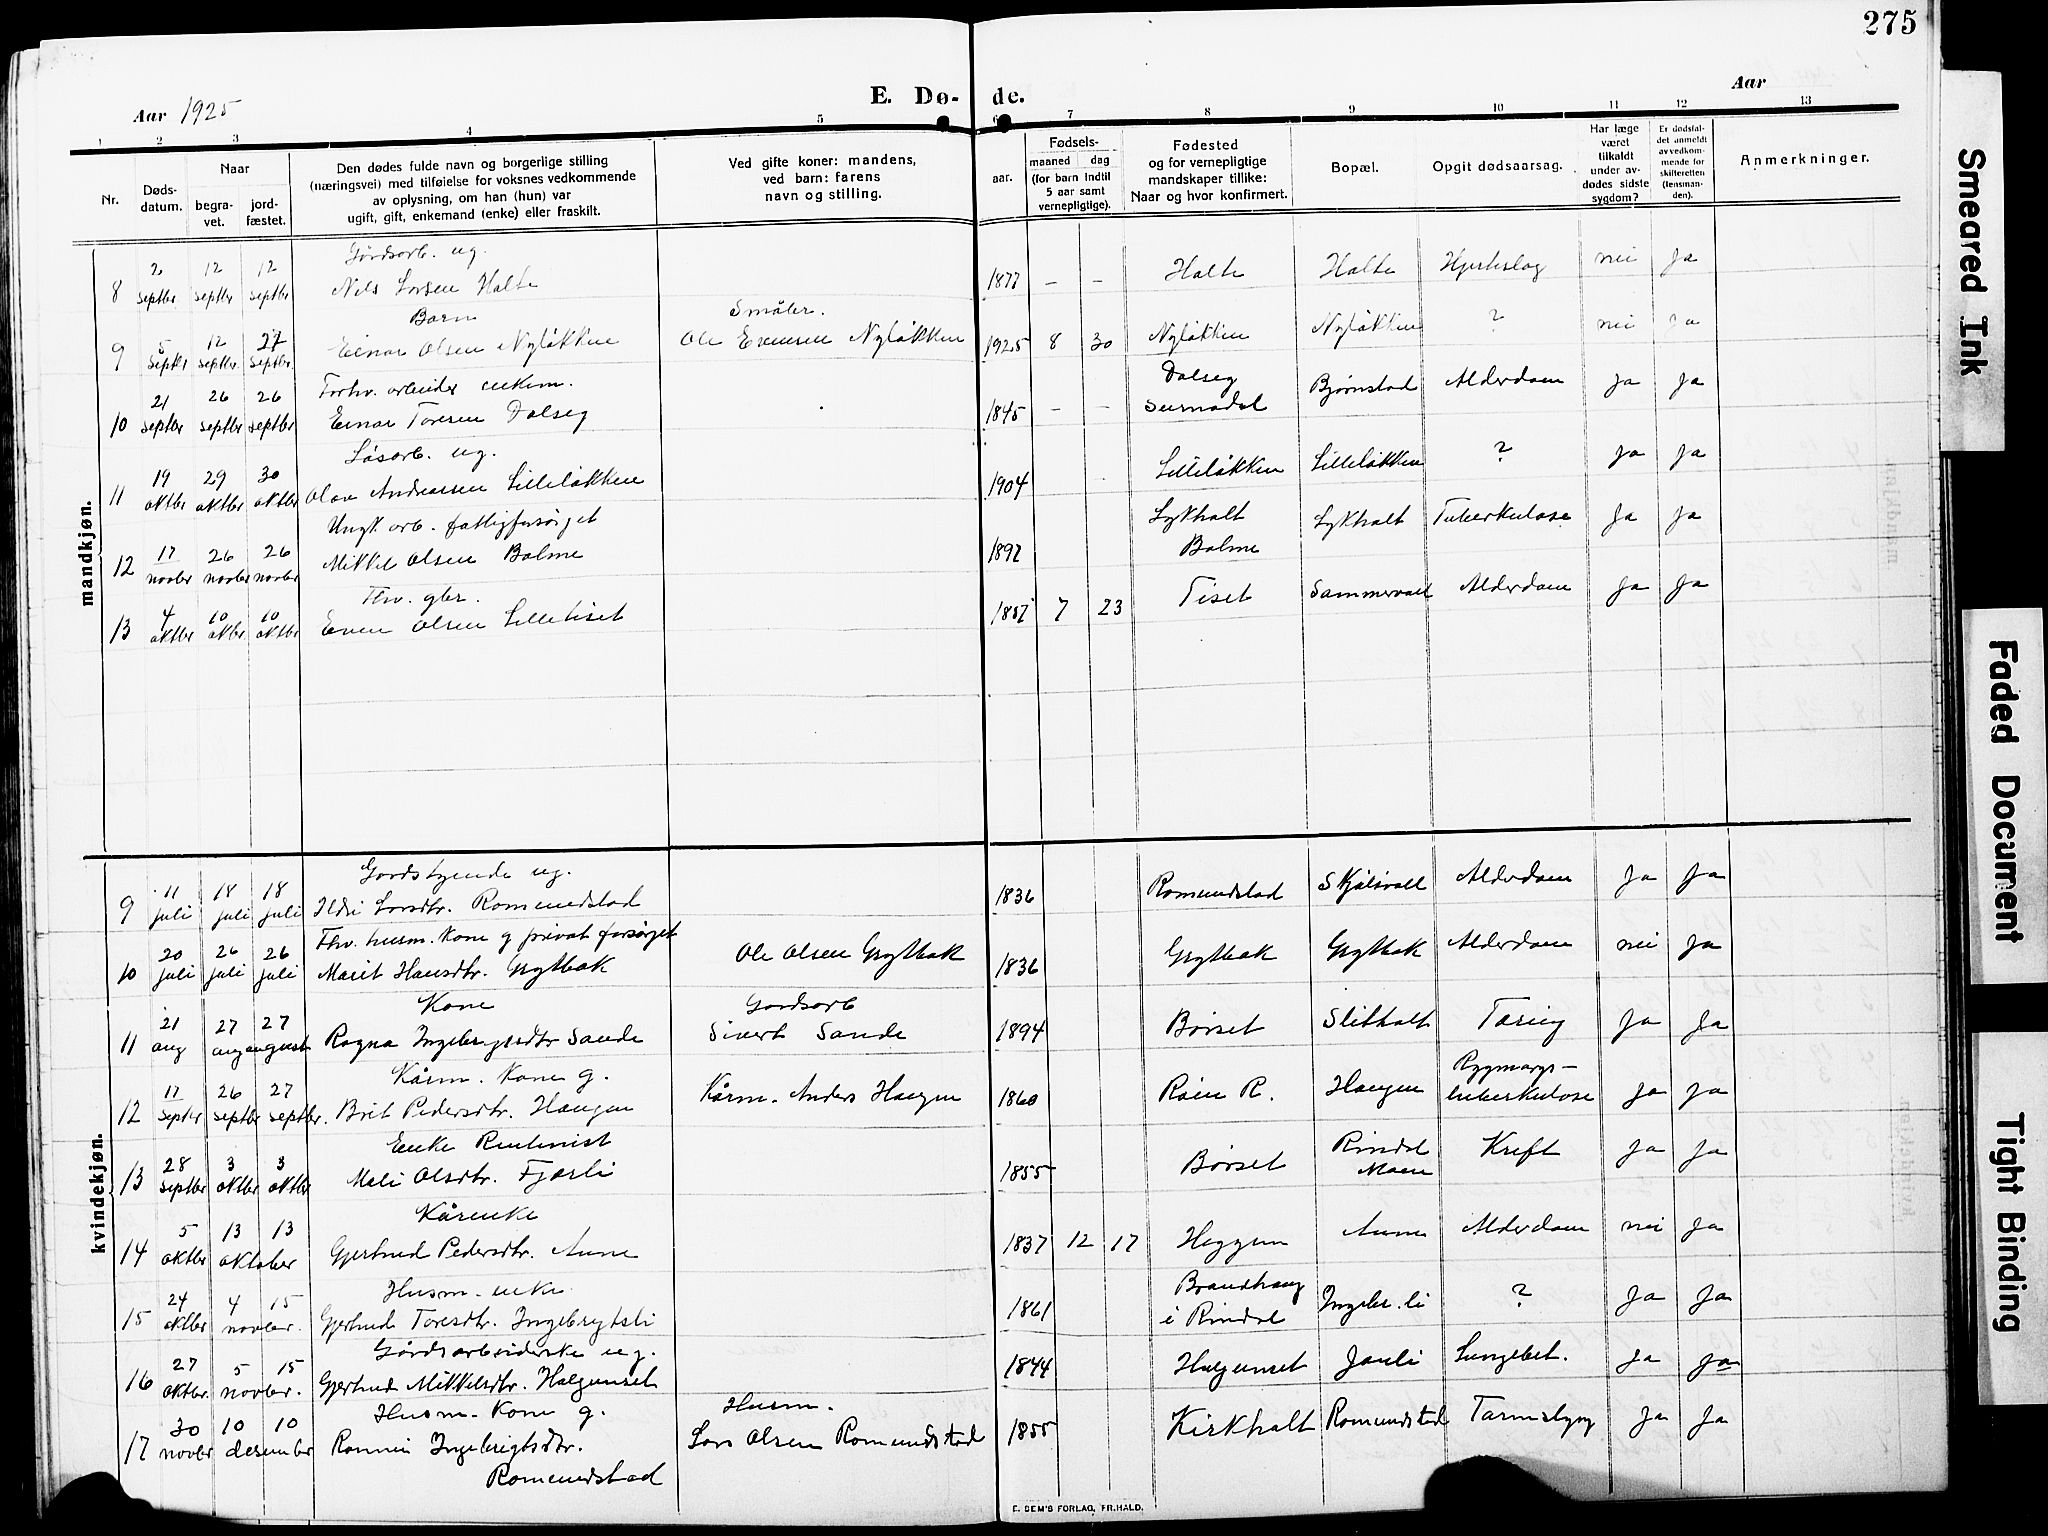 275
Aar 1925
E. Dø-
de.
Aar
1 2 3 4 5 6 7 8 9 10 11 12 13
Nr.
Døds-
datum.
Naar
begra-
vet.
jord-
fæstet.
Den dødes fulde navn og borgerlige stilling
(næringsvei) med tilføielse for voksnes vedkommende
av oplysning, om han (hun) var
ugift, gift, enkemand (enke) eller fraskilt.
Ved gifte koner: mandens,
ved barn: farens
navn og stilling.
Fødsels-
aar.
maaned dag
(for barn indtil
5 aar samt
vernepligtige).
Fødested
og for vernepligtige
mandskaper tillike:
Naar og hvor konfirmert.
Bopæl.
Opgit dødsaarsag.
Har læge
været
tilkaldt
under av-
dødes sidste
sygdom?
Er dødsfal-
det anmeldt
av vedkom-
mende for
skifteretten
(lensman-
den).
Anmerkninger.
mandkjøn.
Gårdsarb. ug.
8 2 septbr 12 septbr 12 septbr Nils Larsen Halte 1877 — — Halte Halte Hjerteslag nei Ja
Barn Småbr.
9 5 septbr 12 septbr 27 septbr Einar Olsen Nyløkken Ole Evensen Nyløkken 1925 8 30 Nyløkken Nyløkken ? nei Ja
Forhv. arbeider enkem.
10 21 septbr 26 septbr 26 septbr Einar Toresen Dalseg 1845 — — Dalseg Surnadal Bjørnstad Alderdom Ja Ja
Løsarb. ug.
11 19 oktbr 29 oktbr 30 oktbr Olav Andreassen Lilleløkken 1904 Lilleløkken Lilleløkken ? Ja Ja
Ungk arb. fattigforsørget
12 17 novbr 26 novbr 26 novbr Mikkel Olsen Bolme 1892 Lykholt Bolme Lykholt Tuberkulose Ja Ja
Fhv. gbr.
13 4 oktbr 10 oktbr 10 oktbr Even Olsen Lilletiset 1837 7 23 Tiset Sammervold Alderdom Ja Ja
kvindekjøn.
Gardstyende ug.
9 11 juli 18 juli 18 juli Ildri Larsdtr. Romundstad 1836 Romundstad Skjølsvold Alderdom Ja Ja
Fhv. husm. kone g privat forsørget
10 20 juli 26 juli 26 juli Marit Hansdtr. Grytbak Ole Olsen Grytbak 1836 Grytbak Grytbak Alderdom nei Ja
Kone Gardsarb
11 21 aug 27 aug 27 august Ragna Ingebrigtsdtr Sande Sivert Sande 1894 Børset Sletholt Tæring Ja Ja
Kårm. kone g.
12 17 septbr 26 septbr 27 septbr. Brit Pedersdtr. Haugen Kårm. Anders Haugen 1860 Røen R. Haugen Rygmargs-
tuberkulose Ja Ja
Enke Rentenist
13 28 septbr 3 oktbr 3 oktbr Mali Olsdtr. Fjærli 1855 Børset Rindal Moen Kreft Ja Ja
Kårenke
14 5 oktbr 13 13 oktober Gjertrud Pedersdtr. Aune 1837 12 17 Heggem Aune Alderdom nei Ja
Husm. enke
15 24 oktbr 4 15 novbr. Gjertrud Toresdtr. Ingebrigtsli 1861 Brandhaug
i Rindal Ingebr.li ? Ja Ja
Gårdsarbeiderske ug.
16 27 oktbr. 5 15 novbr. Gjertrud Mikkelsdtr. Halgunset 1844 Halgunset Jonli Lungebet. Ja Ja
Husm. kone g. Husm.
17 30 novbr 10 10 desember Ronnau Ingebrigtsdtr. Lars Olsen Romundstad 1855 Kirkholt Romundstad Tarmslyng Ja Ja
Romundstad
E. SEM'S FORLAG, FR.HALD.
Smeared Ink
Faded Document
Tight Binding